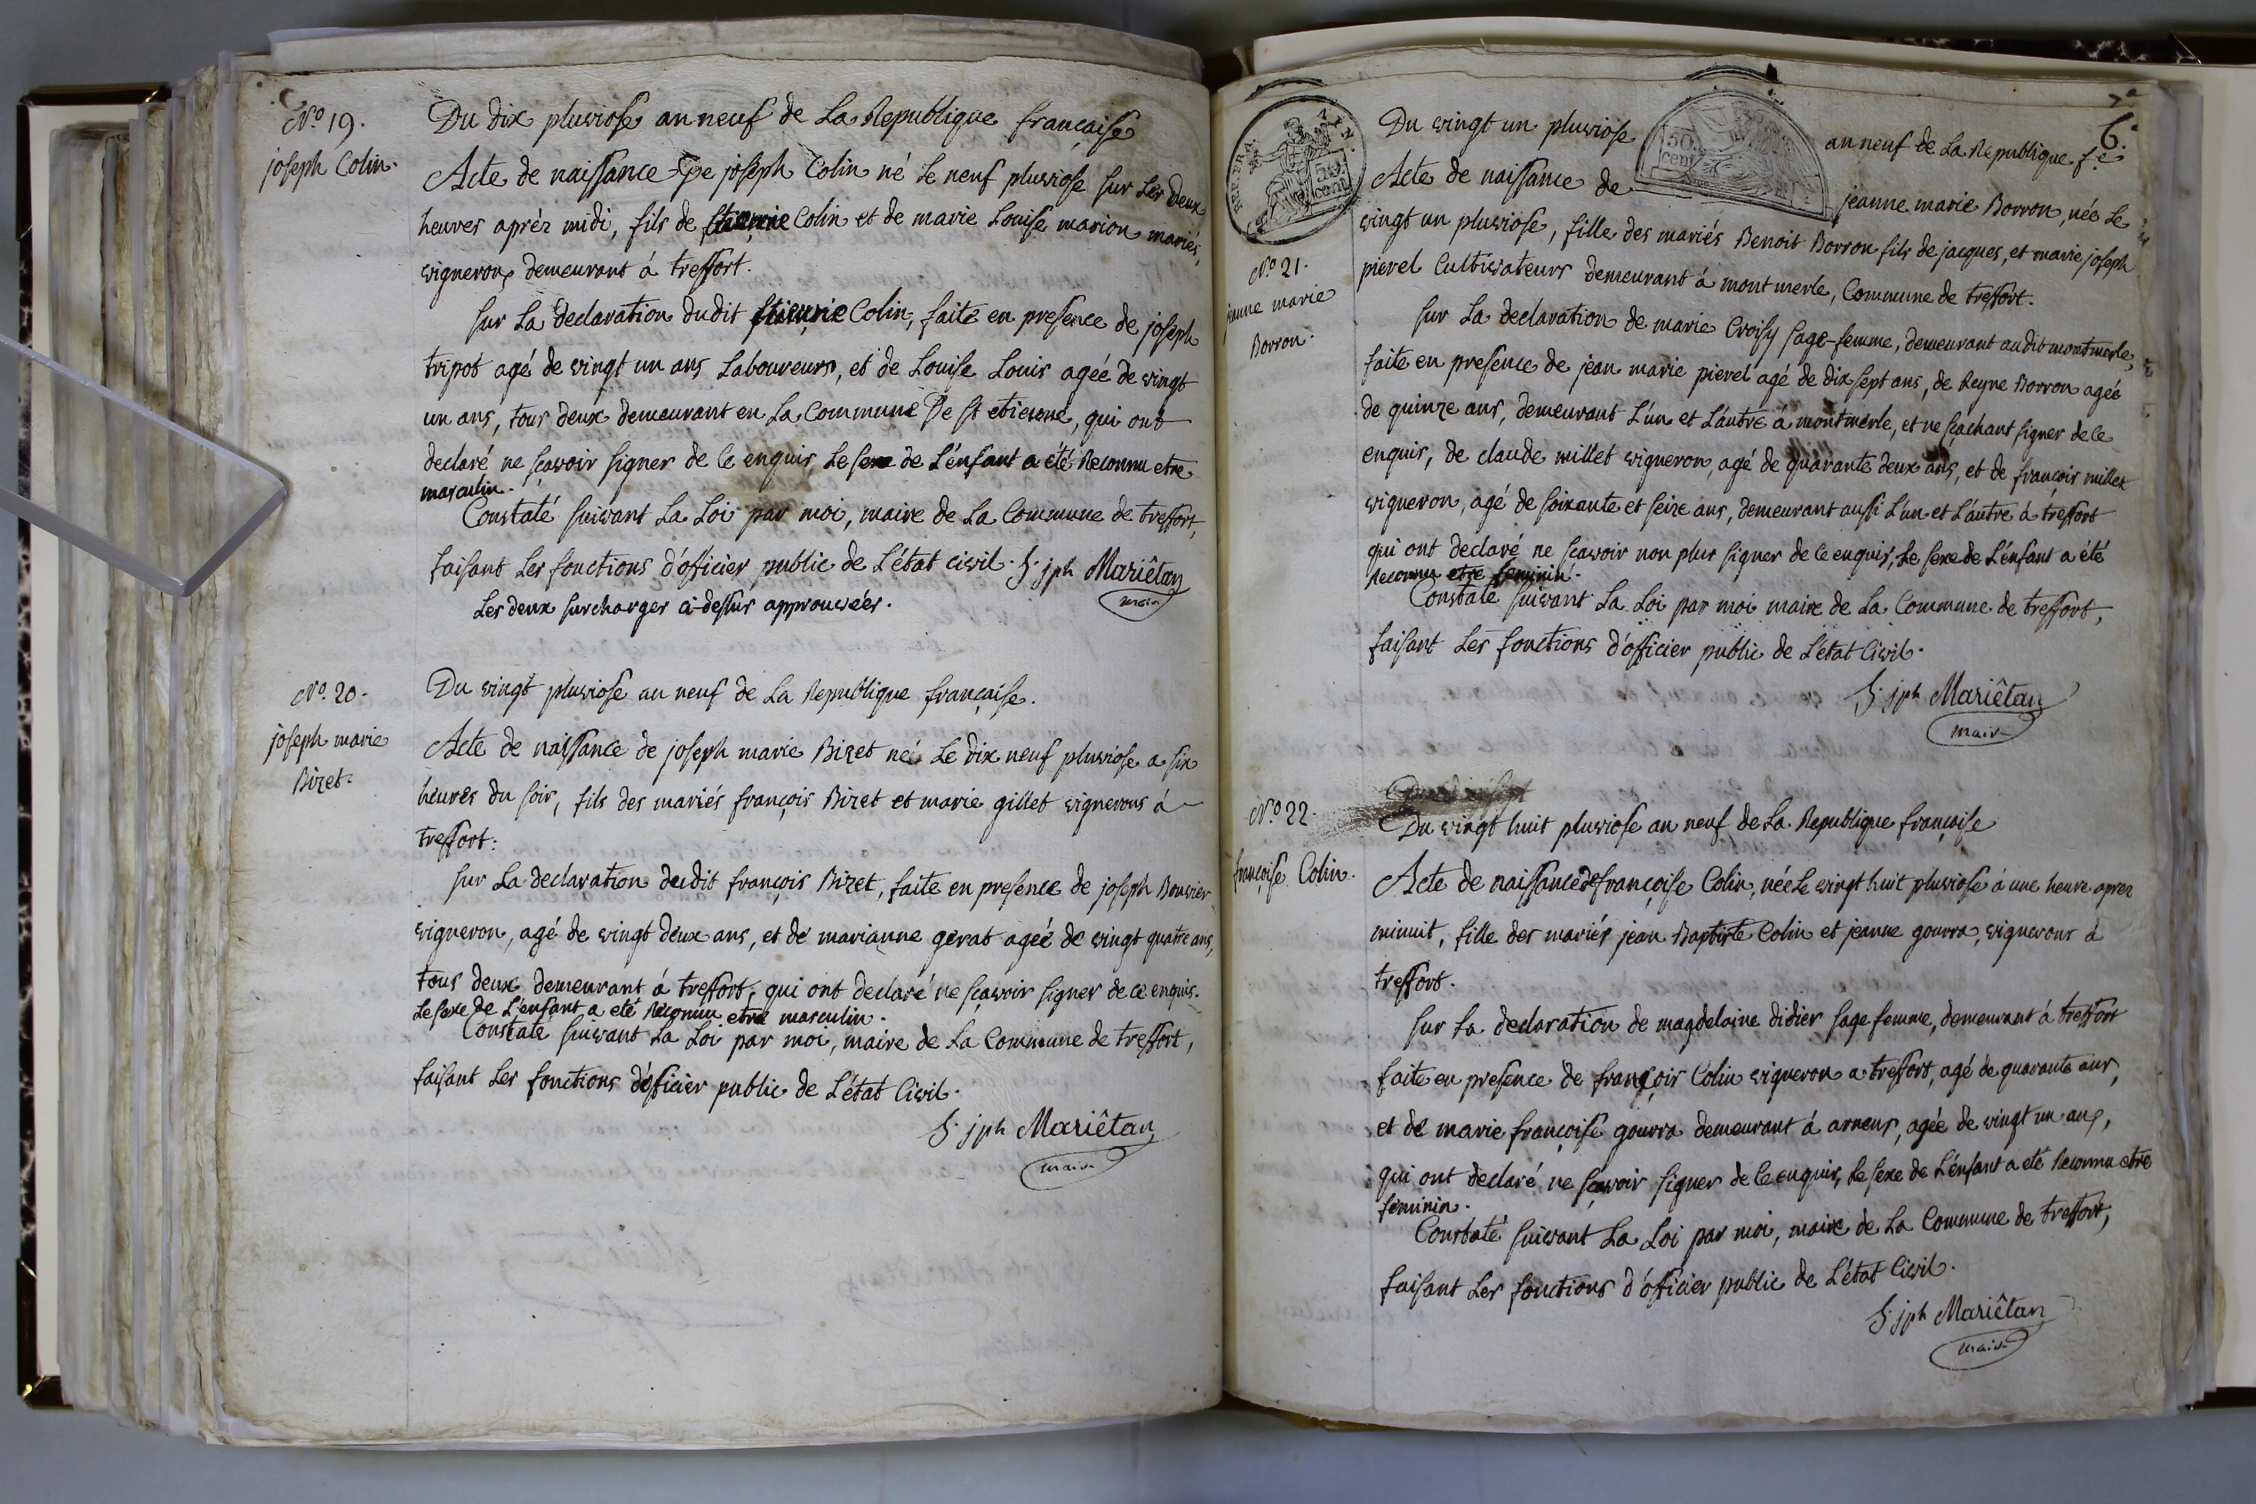 No. 19.
joseph Colin.
Du dix pluviose an neuf de La Republique française
Acte de naissance De joseph Colin né Le neuf pluviose sur Les Deux
heures aprèz midi, fils de Colin et de marie Louise marion mariés,
vignerons demeurant á treffort.
sur La declaration dudit Colin, faite en presence de joseph
tripot agé de vingt un ans Laboureurs, et de Louise Louis agéé de vingt
un ans, tous deux demeurant en La Commune De St etienne, qui ont
declaré ne sçavoir signer de ce enquis, Le sexe de L'énfant a été Reconnu etre
masculin.
Constaté suivant La Loi par moi, maire de La Commune de treffort,
faisant Les fonctions d'officier public de L'état civil. jph Mariêtan
maire
Les deux surcharges ci-dessus approuvéés.
No. 20.
joseph marie
Bizet.
Du vingt pluviose an neuf de La Republique française.
Acte de naissance de joseph marie Bizet né Le dix neuf pluviose a six
héures du soir, fils des mariés françois Bizet et marie gillet vignerons á
treffort:
sur La declaration dudit françois Bizet, faite en presence de joseph Bouvier
vigneron, agé de vingt deux ans, et de marianne gerat agéé de vingt quatre ans,
tous deux demeurant á treffort, qui ont declaré ne sçavoir signer de ce enquis.
Le sexe de L'enfant a eté Reconnu etre masculin.
Constaté suivant La Loi par moi, maire de La Commune de treffort,
faisant Les fonctions d'officier public de L'état Civil.
jph Mariêtan
maire
6.
50
cent
50
cent
Du vingt un pluviose an neuf de La Republique fe
Acte de naissance de jeanne marie Borron, née Le
vingt un pluviose, fille des mariés Benoit Borron fils de jacques, et marie joseph
pierel Cultivateurs demeurant á mont merle, Commune de treffort.
No. 21.
jeanne marie
Borron.
sur La declaration de marie Croisy sage-femme, demeurant audit montmerle,
faite en presence de jean marie pierel agé de dix sept ans, de Reyne Borron agéé
de quinze ans, demeurant L'un et L'autre á montmerle, et ne sçachant signer de ce
enquis, de claude millet vigneron, agé de quarante deux ans, et de françois millet
vigneron, agé de soixante et seize ans, demeurant aussi L'un et L'autre á treffort
qui ont declaré ne sçavoir non plus signer de ce enquis, Le sexe de L'énfant a été
Reconnu etre feminin.
Constaté suivant La Loi par moi maire de La Commune de treffort,
faisant Les fonctions d'officier public de L'état Civil.
jph Mariêtan
maire
No. 22.
françoise Colin.
Du vingt huit pluviose an neuf de La Republique françoise
Acte de naissance de françoise Colin, née Le vingt huit pluviose á une heure aprez
minuit, fille des mariés jean Baptiste Colin et jeanne gourra, vignerons á
treffort.
sur La declaration de magdelaine didier sage femme, demeurant á treffort
faite en presence de françois Colin vigneron a treffort, agé de quarante ans,
et de marie françoise gourra demeurant á arnens, agée de vingt un ans,
qui ont declaré ne sçavoir signer de Ce enquis, Le sexe de L'énfant a eté Reconnu etre
feminin.
Constaté suivant La Loi par moi, maire de La Commune de treffort,
faisant Les fonctions d'officier public de L'état Civil.
jph Mariêtan
maire